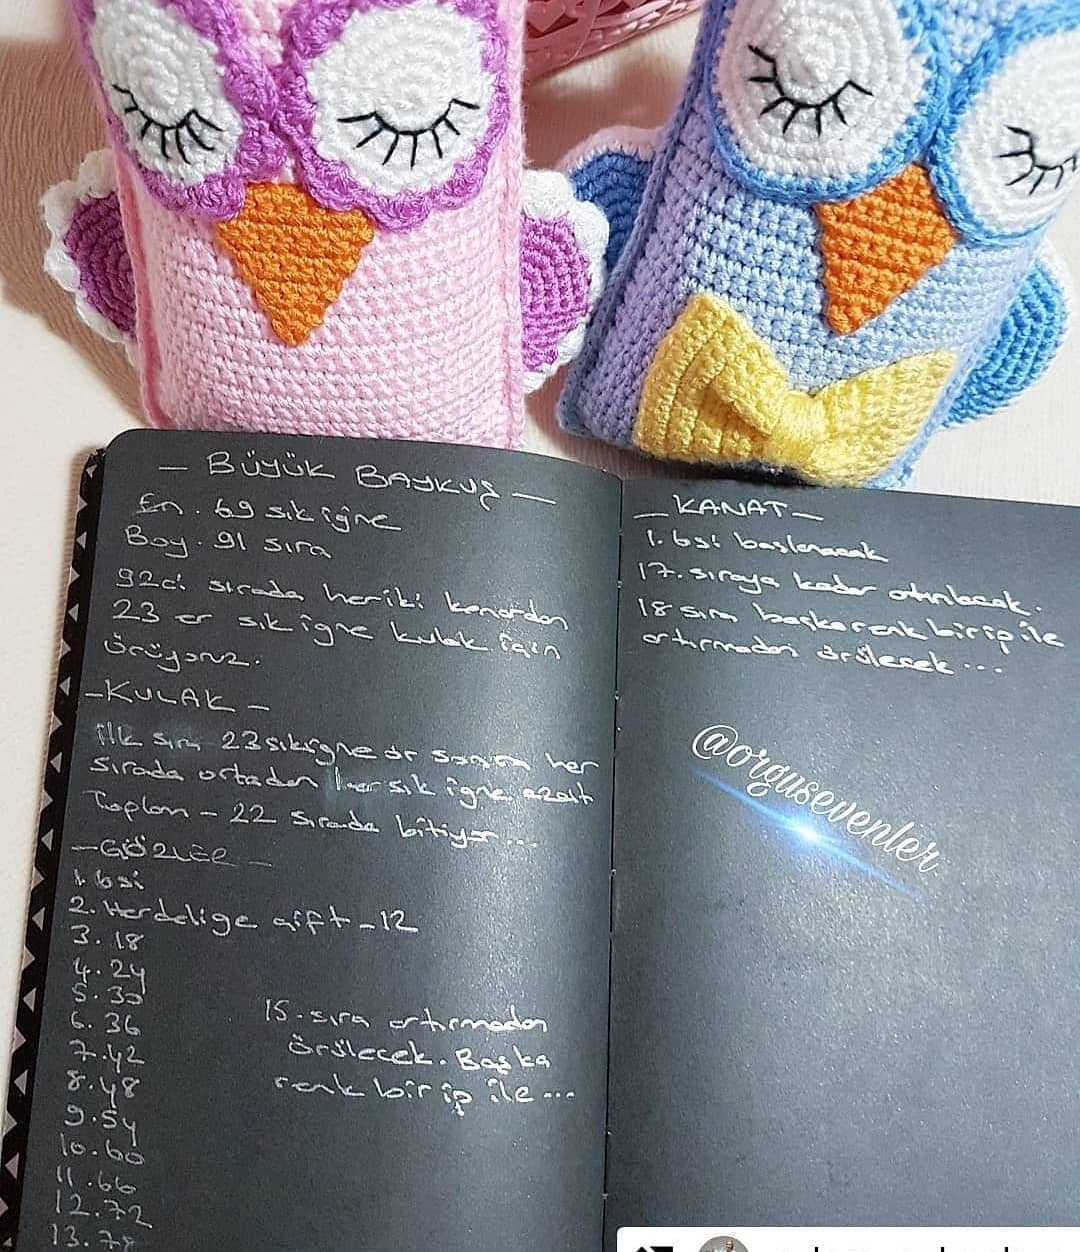 — BÜYÜK BAYKUŞ —
En . 69 sık iğne
Boy . 91 sıra
92ci sırada heriki kenardan
23 er sık iğne kulak için
örüyoruz.
— KULAK —
ilk sıra 23 sıkiğne ör sonra her
sırada ortadan 1 er sık iğne azalt
Toplam - 22 sırada bitiyor...
— GÖZLER —
1. bsi
2. Herdeliğe çift - 12
3. 18
4. 24
5. 30
6. 36
7. 42
8. 48
9. 54
10. 60
11. 66
12. 72
13. 78
15. sıra artırmadan
örülecek. Başka
renk bir ip ile ...
— KANAT —
1. bsi başlanacak
17. sıraya kadar artırılacak.
18 sıra başka renk bir ip ile
artırmadan örülecek ...
@orgusevenler